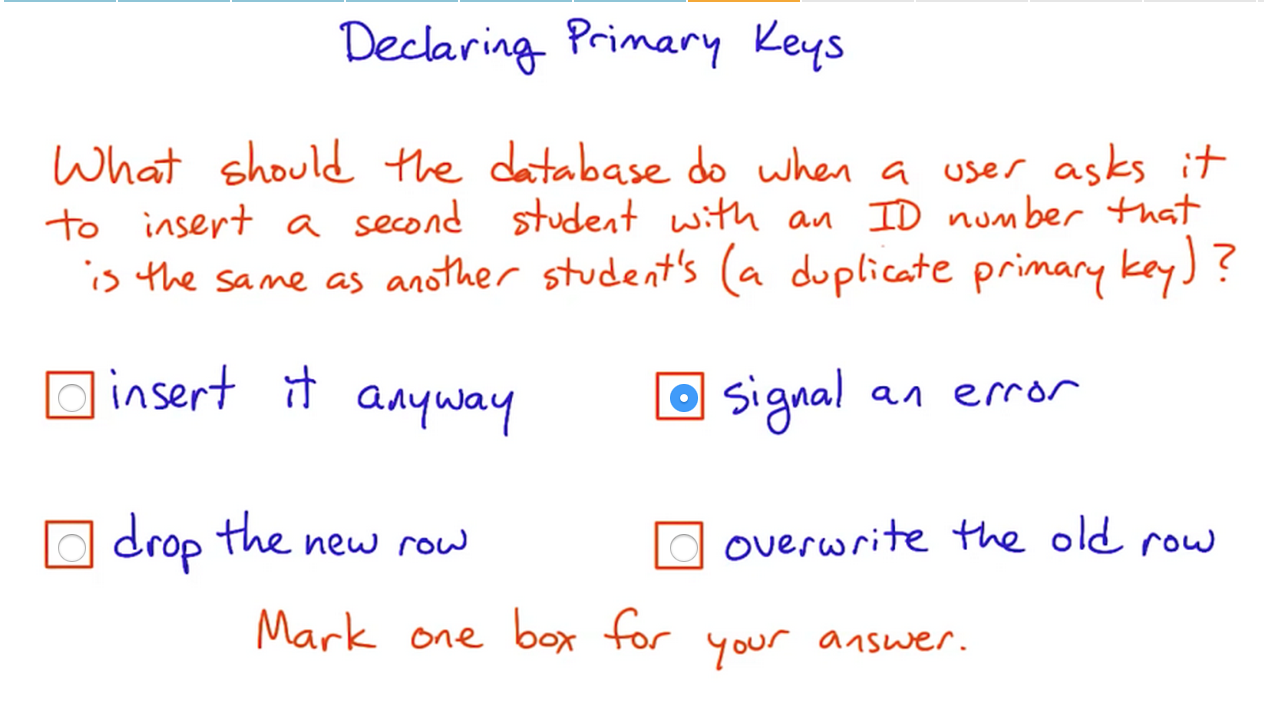 Declaring Primary Keys
What should the database do when a user asks it
to insert a second student with an ID number that
is the same as another student's (a duplicate primary key)?
insert it anyway
signal an error
drop the new row
overwrite the old row
Mark one box for your answer.